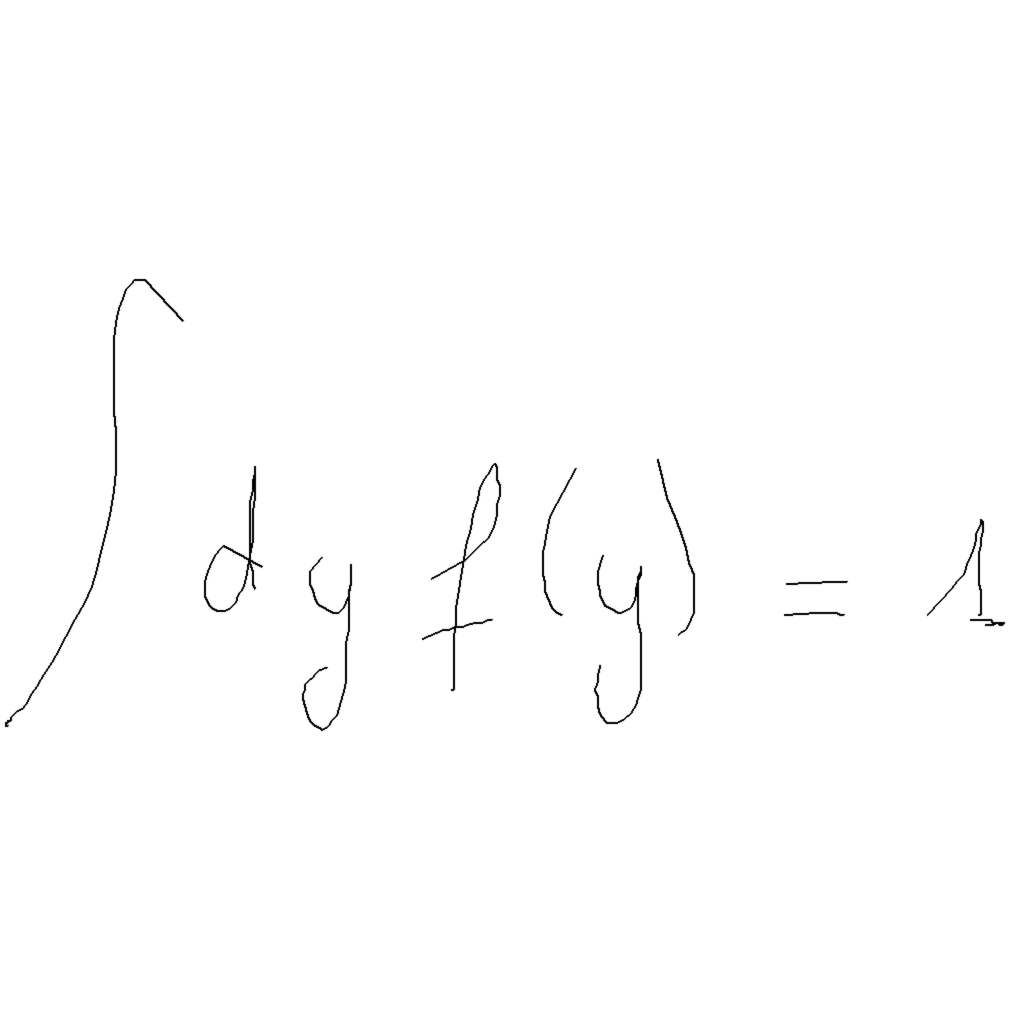 ∫ dy f(y) = 1